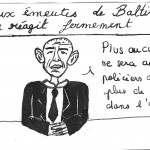 ux émeutes de Balti
réagit fermement
Plus aucu
ne sera au
policiers d
plus de
dans l'